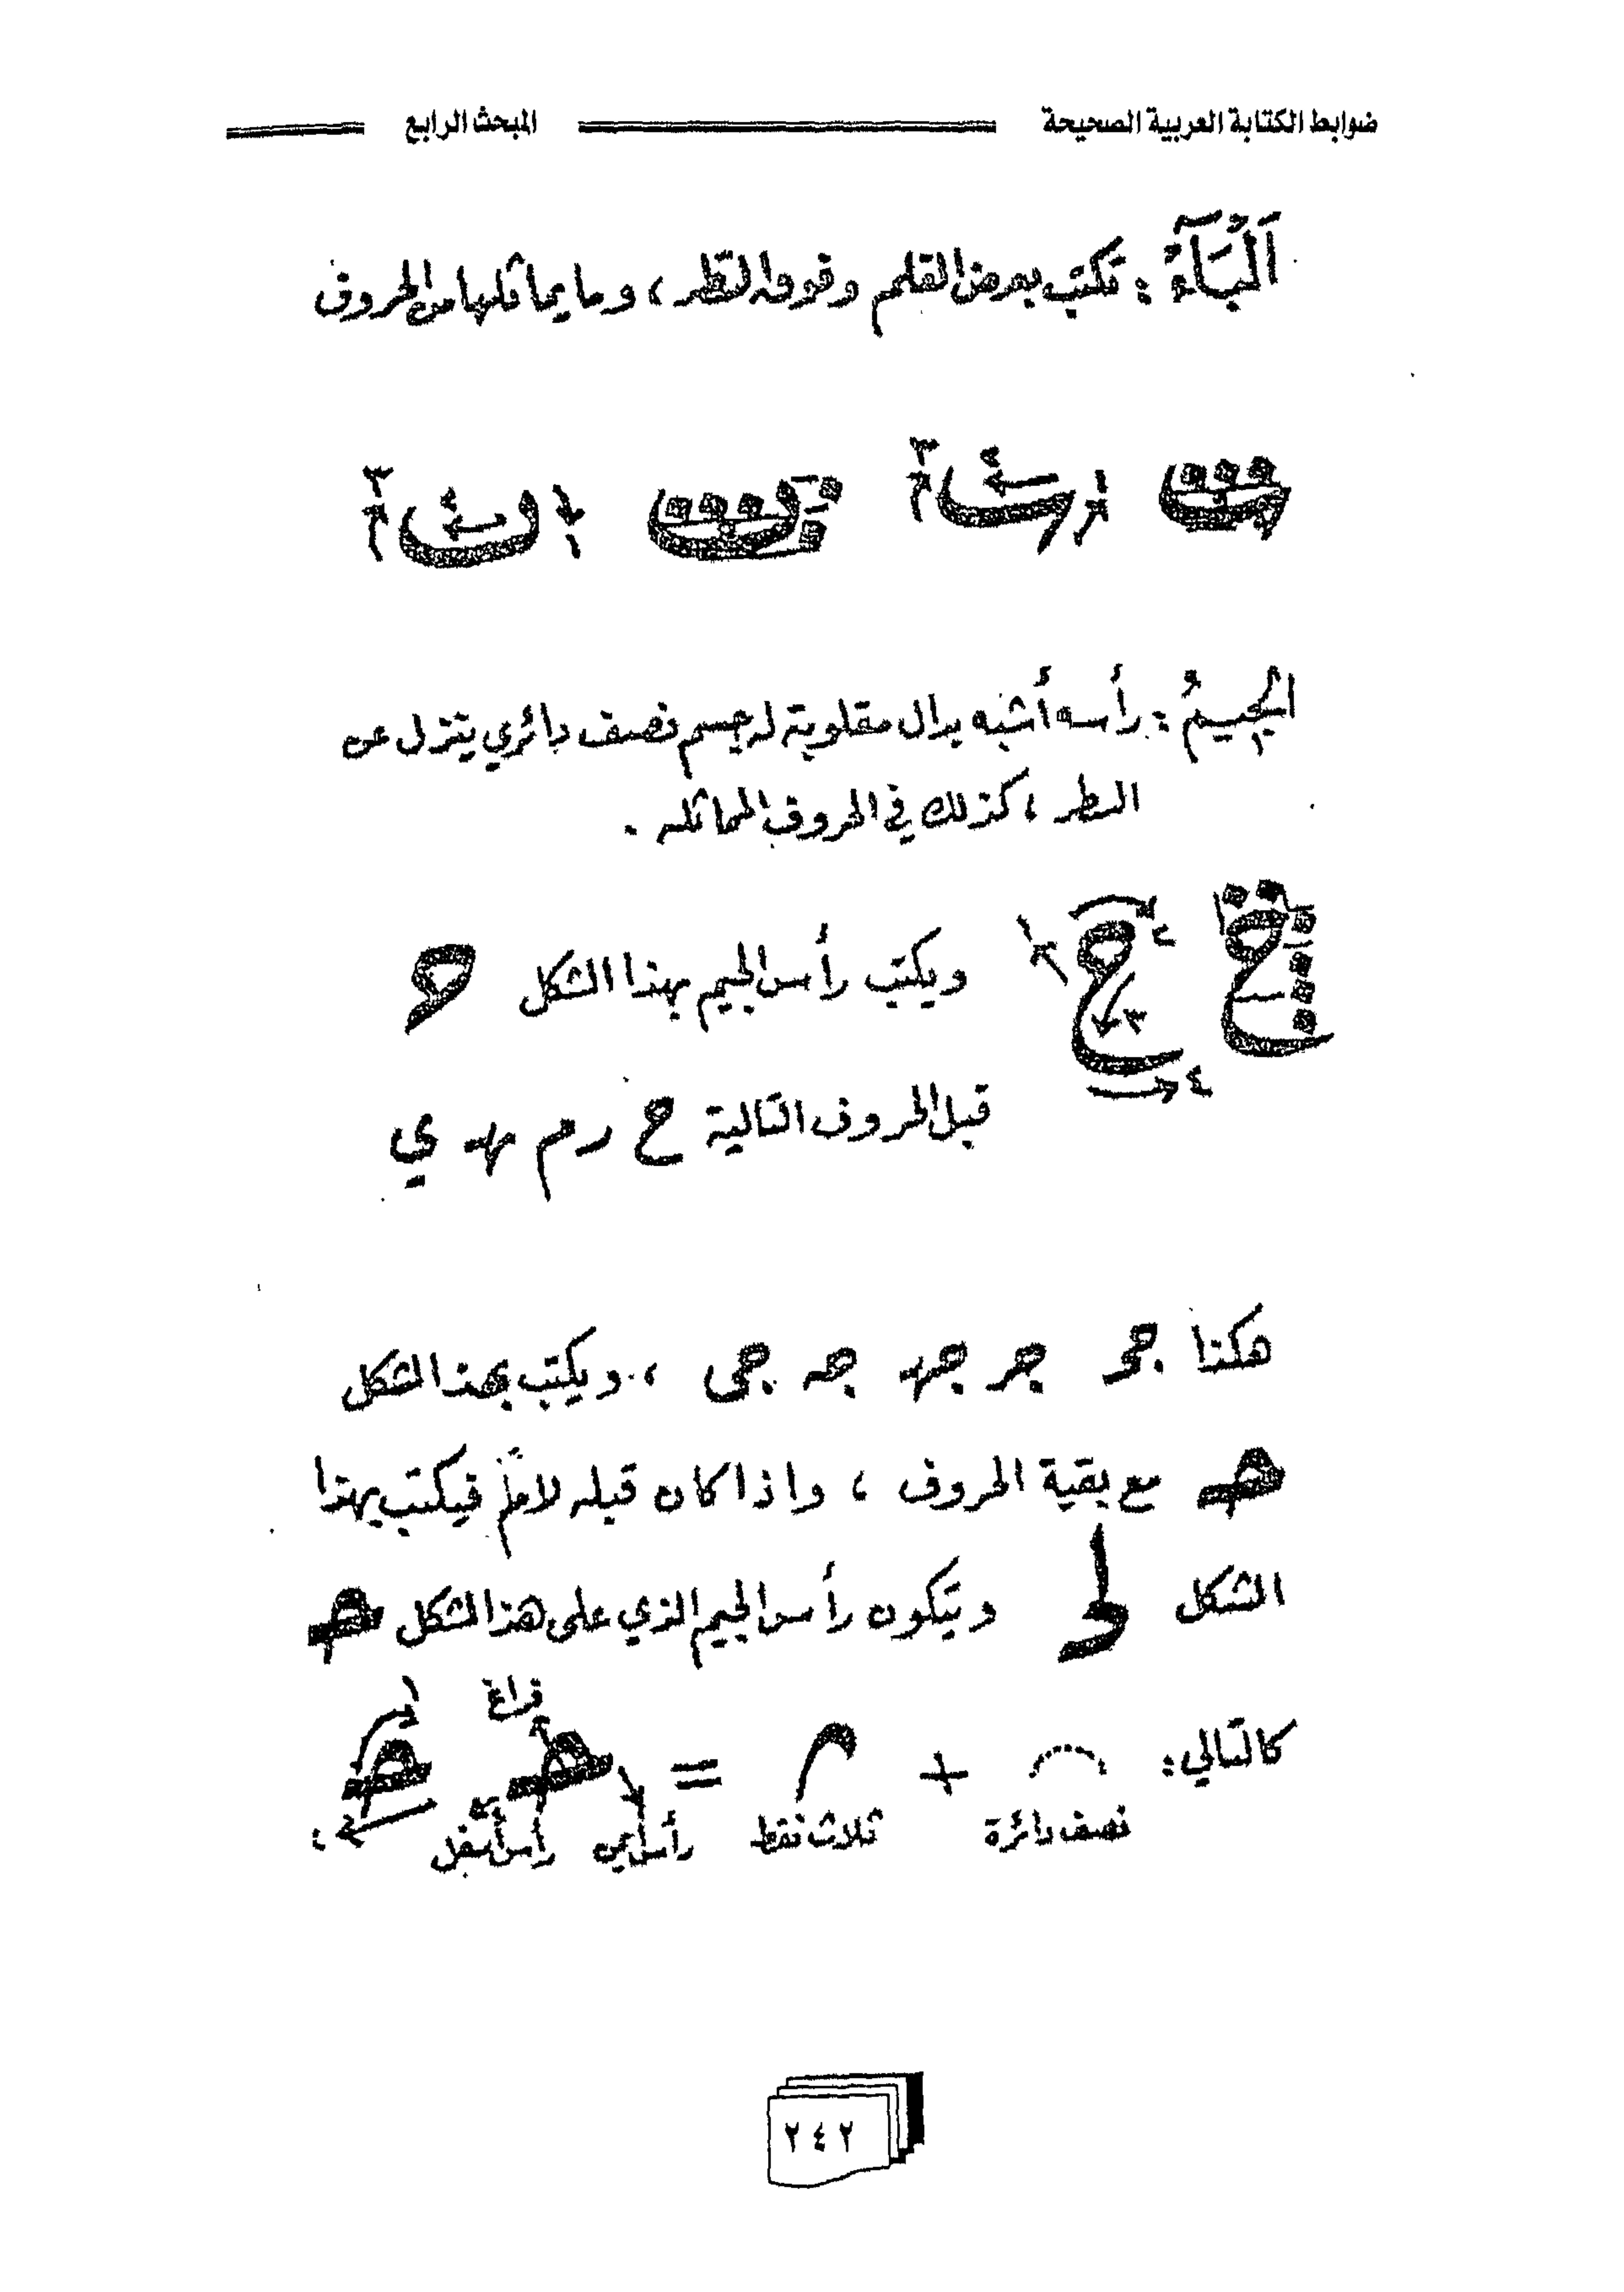 ضوابط الكتابة العربية الصحيحة المبحث الرابع
اَلْبَآءُ : تكتب بعرض القلم وفوق السّطر ، وما يماثلها من الحروف
١ ٢ ٣
١ ٢ ٣
الجِيمُ : رأسه أشبه بدال مقلوبة له جسم نصف دائري ينزل عن
السطر ، كذلك في الحروف المماثله .
١ ٢ ٣ ٤
ويكتب رأس الجيم بهذا الشكل
قبل الحروف التالية ح ر م هـ ي
هكذا جح جر جهـ جه جى ، ويكتب بهذا الشكل
مع بقية الحروف ، واذا كان قبله لامٌ فيكتب بهذا
الشكل ويتكون رأس الجيم الذي على هذا الشكل
كالتالي : + = فراغ ١
نصف دائرة ثلاث نقط رأس أيمن رأس أسفل ٢
٢٤٢